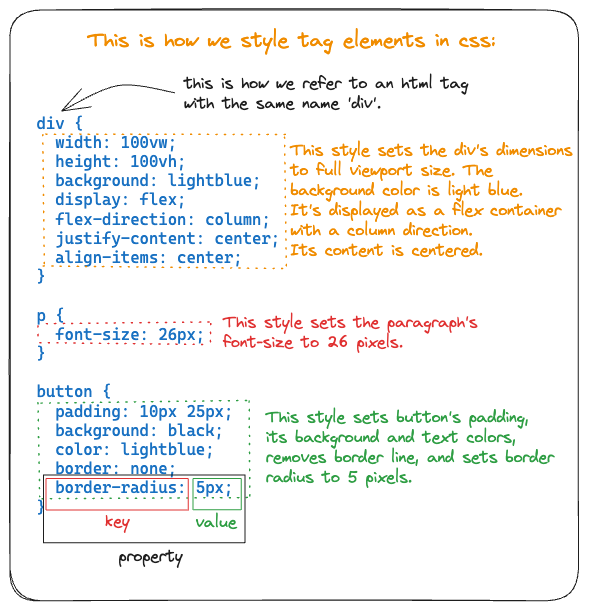 This is how we style tag elements in css:
this is how we refer to an html tag
with the same name 'div'.
div {
width: 100vw;
height: 100vh;
background: lightblue;
display: flex;
flex-direction: column;
justify-content: center;
align-items: center;
}
This style sets the div's dimensions
to full viewport size. The
background color is light blue.
It's displayed as a flex container
with a column direction.
Its content is centered.
p {
font-size: 26px;
}
This style sets the paragraph's
font-size to 26 pixels.
button {
padding: 10px 25px;
background: black;
color: lightblue;
border: none;
border-radius: 5px;
}
This style sets button's padding,
its background and text colors,
removes border line, and sets border
radius to 5 pixels.
key
value
property